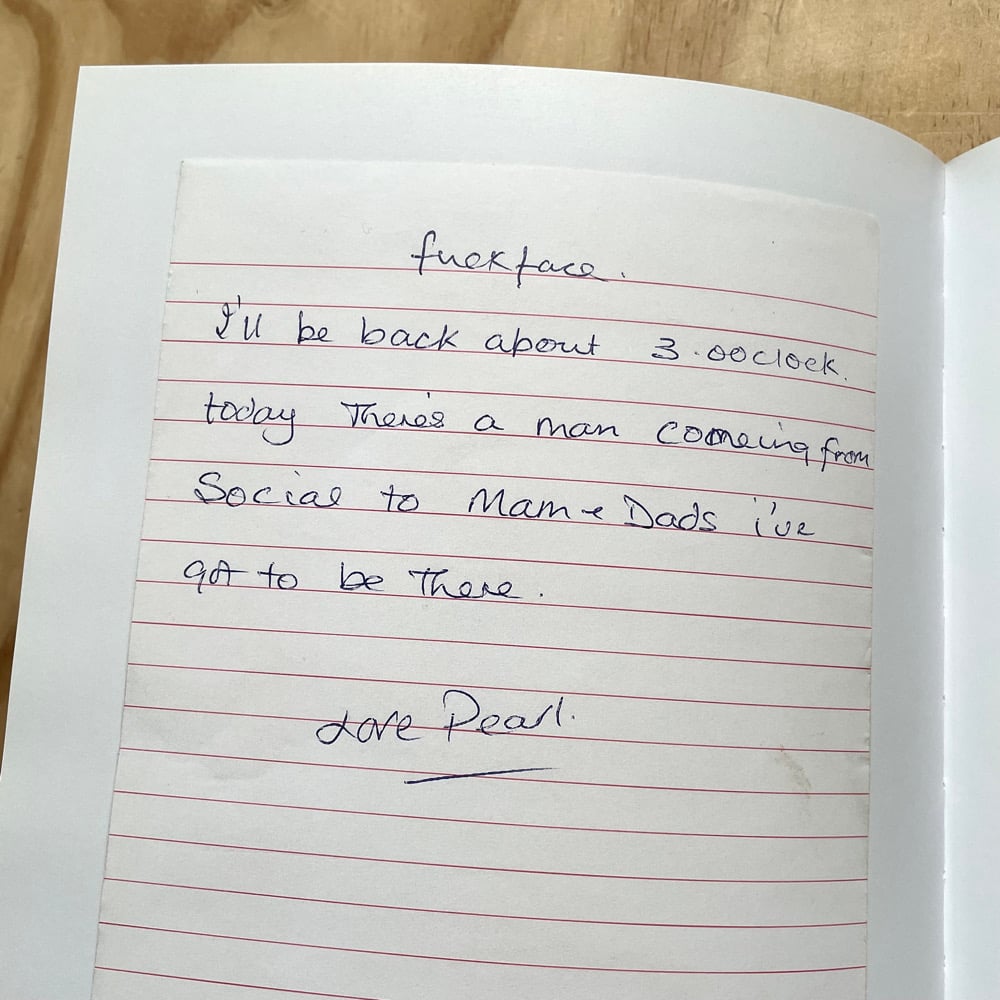 fuckface.
I'll be back about 3.ooclock.
today There's a man comeing from
Social to Mam + Dads i've
got to be There.
Love Pearl.